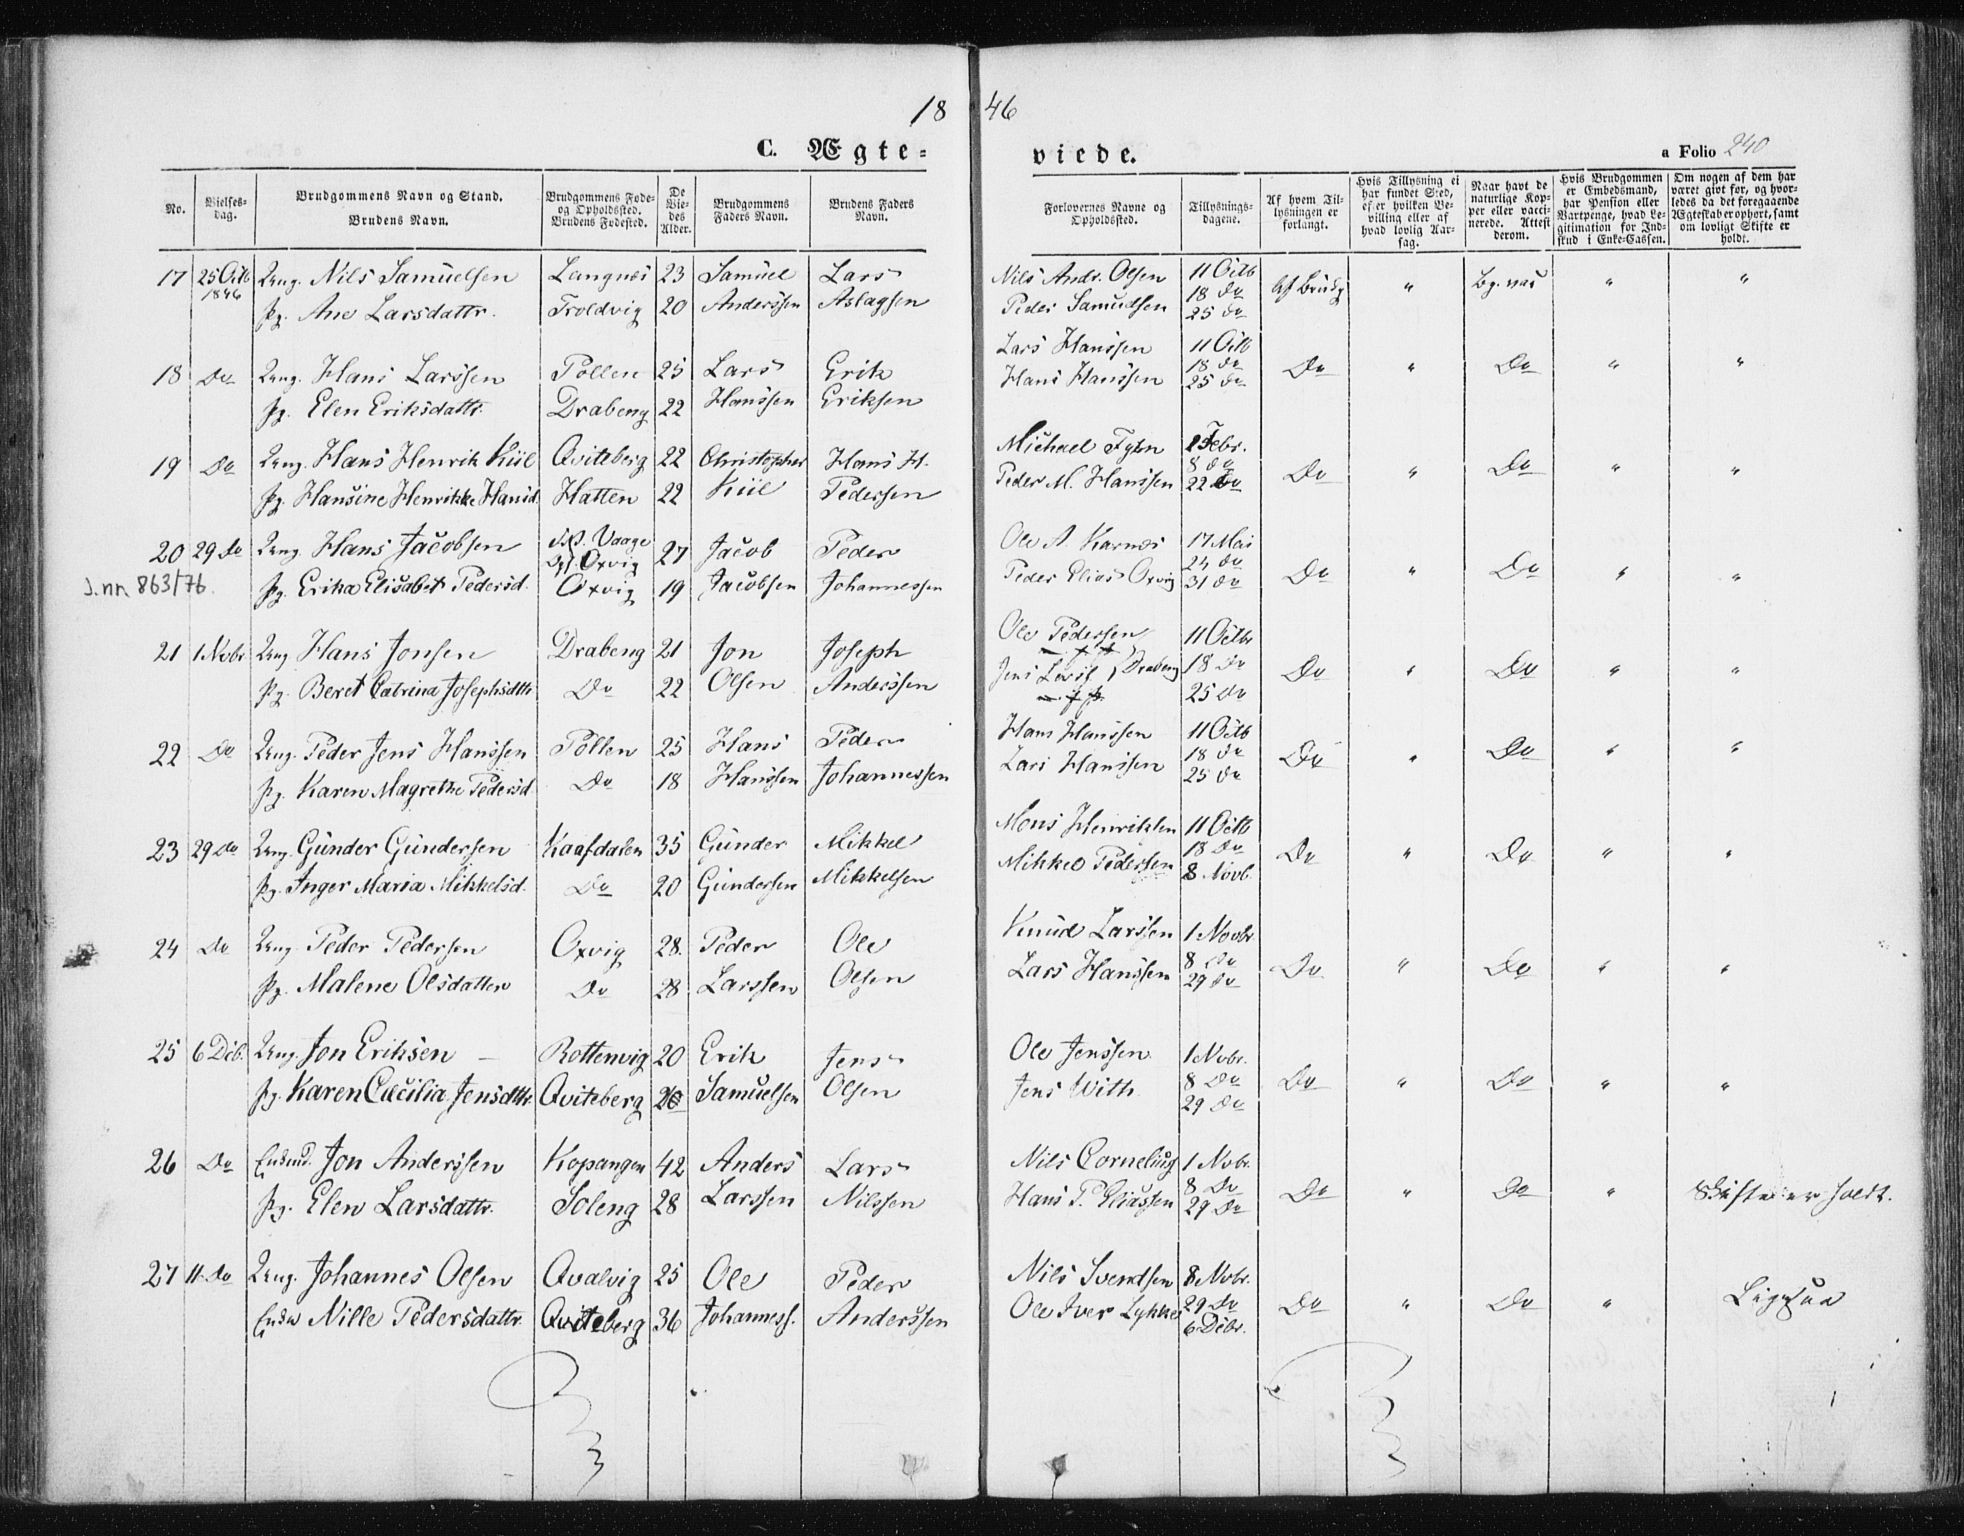 18 46
C. Ægte= viede. a Folio 240
No.
Vielses-
dag.
Brudgommens Navn og Stand.
Brudens Navn.
Brudgommens Føde-
og Opholdssted.
Brudens Fødested.
De
Vie-
des
Alder.
Brudgommens
Faders Navn.
Brudens Faders
Navn.
Forlovernes Navne og
Opholdssted.
Tillysnings-
dagene.
Af hvem Til-
lysningen er
forlangt.
Hvis Tillysning ei
har fundet Sted,
efter hvilken Be-
villing eller af
hvad lovlig Aar-
sag.
Naar havt de
naturlige Kop-
per eller vacci-
nerede. Attest
derom.
Hvis Brudgommen
er Embedsmand,
har Pension eller
Vartpenge, hvad Le-
gitimation for Ind-
skud i Enke-Cassen.
Om nogen af dem har
været givt før, og hvor-
ledes da det foregaaende
Ægteskab er ophørt, samt
om lovligt Skifte er
holdt.
17 25 Octb Ung. Nils Samuelsen Langnæs 23 Samuel Lars Nils Andr. Olsen 11 Octb Af Brudg " Bg. nat " "
1846 Pg. Ane Larsdattr. Troldvig 20 Anderssen Aslagsen Peder Samuelsen 18 Do
25 Do
18 Do Ung. Hans Larssen Pollen 25 Lars Erik Lars Hanssen 11 Octb Do " Do " "
Pg. Elen Eriksdattr. Drabeng 22 Hanssen Eriksen Hans Hanssen 18 Do
25 Do
19 Do Ung. Hans Henrik Kiil Qviteberg 22 Christopher Hans H. Michael Febr. Do " Do " "
Pg. Hansine Henrikke Hansd Hatten 22 Kiil Pedersen Peder M. Hanssen 8 Do
22 Do
20 29 Do Ung. Hans Jacobsen Vaage 27 Jacob Peder Ole A. Karnæs 17 Mai Do " Do " "
Oxvig 24 Do
J.nr. 863/76. Pg. Erika Elisabet Pedersd. Oxvig 19 Jacobsen Johannessen Peder Elias Oxvig 31 Do
21 1 Nvbr Ung Hans Jonsen Drabeng 21 Jon Joseph Ole Pedersen 11 Octbr Do " Do " "
Pg. Beret Catrina Josephsdttr Do 22 Olsen Anderssen Jens Drabeng 18 Do
25 Do
22 Do Ung. Peder Jens Hanssen Pollen 25 Hans Peder Hans Hanssen 11 Octb Do " Do " "
Pg. Karen Magrethe Pedersd Do 18 Hanssen Johannessen Lars Hanssen 18 Do
25 Do
23 29 Do Ung. Gunder Gundersen Kaafdalen 35 Gunder Mikkel Mons Henriksen 11 Octb Do " Do " "
Pg. Inger Maria Mikkelsd. Do 20 Gundersen Mikkelsen Mikkel Pedersen 18 Do
8 Novb.
24 Do Ung Peder Pedersen Oxvig 28. Peder Ole Knud Larssen 1 Novbr Do " Do " "
Pg. Malene Olsdatter Do 28 Larssen Olsen Lars Hanssen 8 Do
29 Do
25 6 Dcb. Ung. Jon Eriksen Rottenvig 20 Erik Jens Ole Jenssen 1 Nvbr. Do " Do " "
Pg. Karen Cæcilia Jensdttr. Qviteberg 20 Samuelsen Olsen Jens With 8 Do
29 Do
26 Do Enkmd. Jon Anderssen Kopangen 42 Anders Lars Nils Cornelius 1 Nvbr. Do " Do " Skifte er holdt.
Pg. Elen Larsdattr. Soleng 28 Larssen Nilssen Hans P. Eliassen 8 Do
29 Do
27 11 Do Ung. Johannes Olsen Qvalvig 25 Ole Peder Nils Svendsen 8 Nvbr. Do " Do " Ligesaa
Enke Nille Pedersdattr Qviteberg 36 Johanness. Anderssen Ole Iver Lykke 29 Do
6 Dcbr.